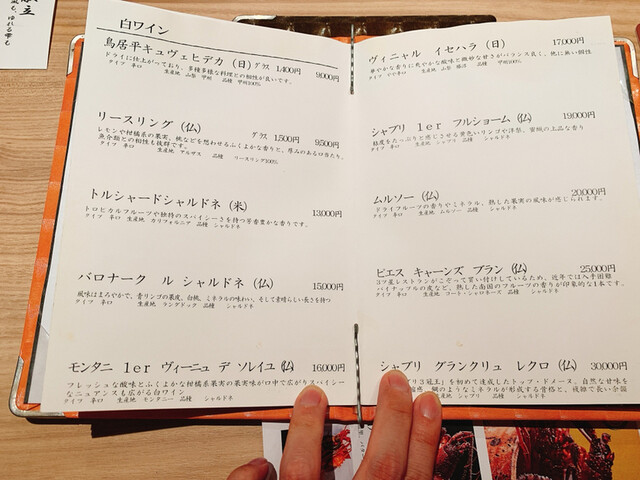 白ワイン
鳥居平キュヴェヒデカ (日) グラス 1,400円 9,000円
ドライに仕上がっており、多種多様な料理との相性が良いです。
タイプ 辛口 生産地 山梨 甲州 品種 甲州100%
リースリング (仏) グラス 1,500円 9,500円
レモンや柑橘系の果実、桃などを想わせるふくよかな香りと、厚みのある口当たり。
魚介類との相性も抜群です。
タイプ 辛口 生産地 アルザス 品種 リースリング100%
トルシャードシャルドネ (米) 13,000円
トロピカルフルーツや独特のスパイシーさを持つ芳香豊かな香りです。
タイプ 辛口 生産地 カリフォルニア 品種 シャルドネ
バロナーク ル シャルドネ (仏) 15,000円
風味はまろやかで、青リンゴの果皮、白桃、ミネラルの味わい、そして素晴らしい長さを持つ
タイプ 辛口 生産地 ラングドック 品種 シャルドネ
モンタニ 1er ヴィーニュ デ ソレイユ (仏) 16,000円
フレッシュな酸味とふくよかな柑橘系果実の果実味が口中で広がりスパイシー
なニュアンスも広がる白ワイン
タイプ 辛口 生産地 モンタニー 品種 シャルドネ
ヴィニャル イセハラ (日) 17,000円
華やかな香りに爽やかな酸味と微妙な甘さがバランス良く、他に無い個性
タイプ やや辛口 生産地 山梨 品種 甲州100%
シャブリ 1er フルショーム (仏) 19,000円
粘度をたっぷりと感じさせる黄色いリンゴや洋梨、蜜桃の上品な香り
タイプ 辛口 生産地 シャブリ 品種 シャルドネ
ムルソー (仏) 20,000円
ドライフルーツの香りやミネラル、熟した果実の風味が感じられます。
タイプ 辛口 生産地 ムルソー 品種 シャルドネ
ピエス キャーンズ ブラン (仏) 25,000円
3ツ星レストランがこぞって買い付けしているため、近年では入手困難
パイナップルの皮など、熟した南国のフルーツの香りが印象的な1本です。
タイプ 辛口 生産地 コート・シャロネーズ 品種 シャルドネ
シャブリ グランクリュ レクロ (仏) 30,000円
リ3冠王」を初めて達成したトップ・ドメーヌ、自然な甘味を
感、鋼のようなミネラルが形成する骨格と、複雑で長い余韻
口 生産地 シャブリ 品種 シャルドネ